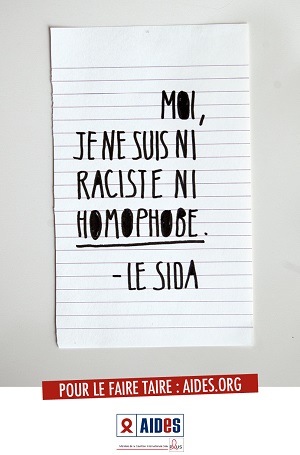 MOI,
JE NE SUIS NI
RACISTE NI
HOMOPHOBE.
- LE SIDA
POUR LE FAIRE TAIRE : AIDES.ORG
AIDeS